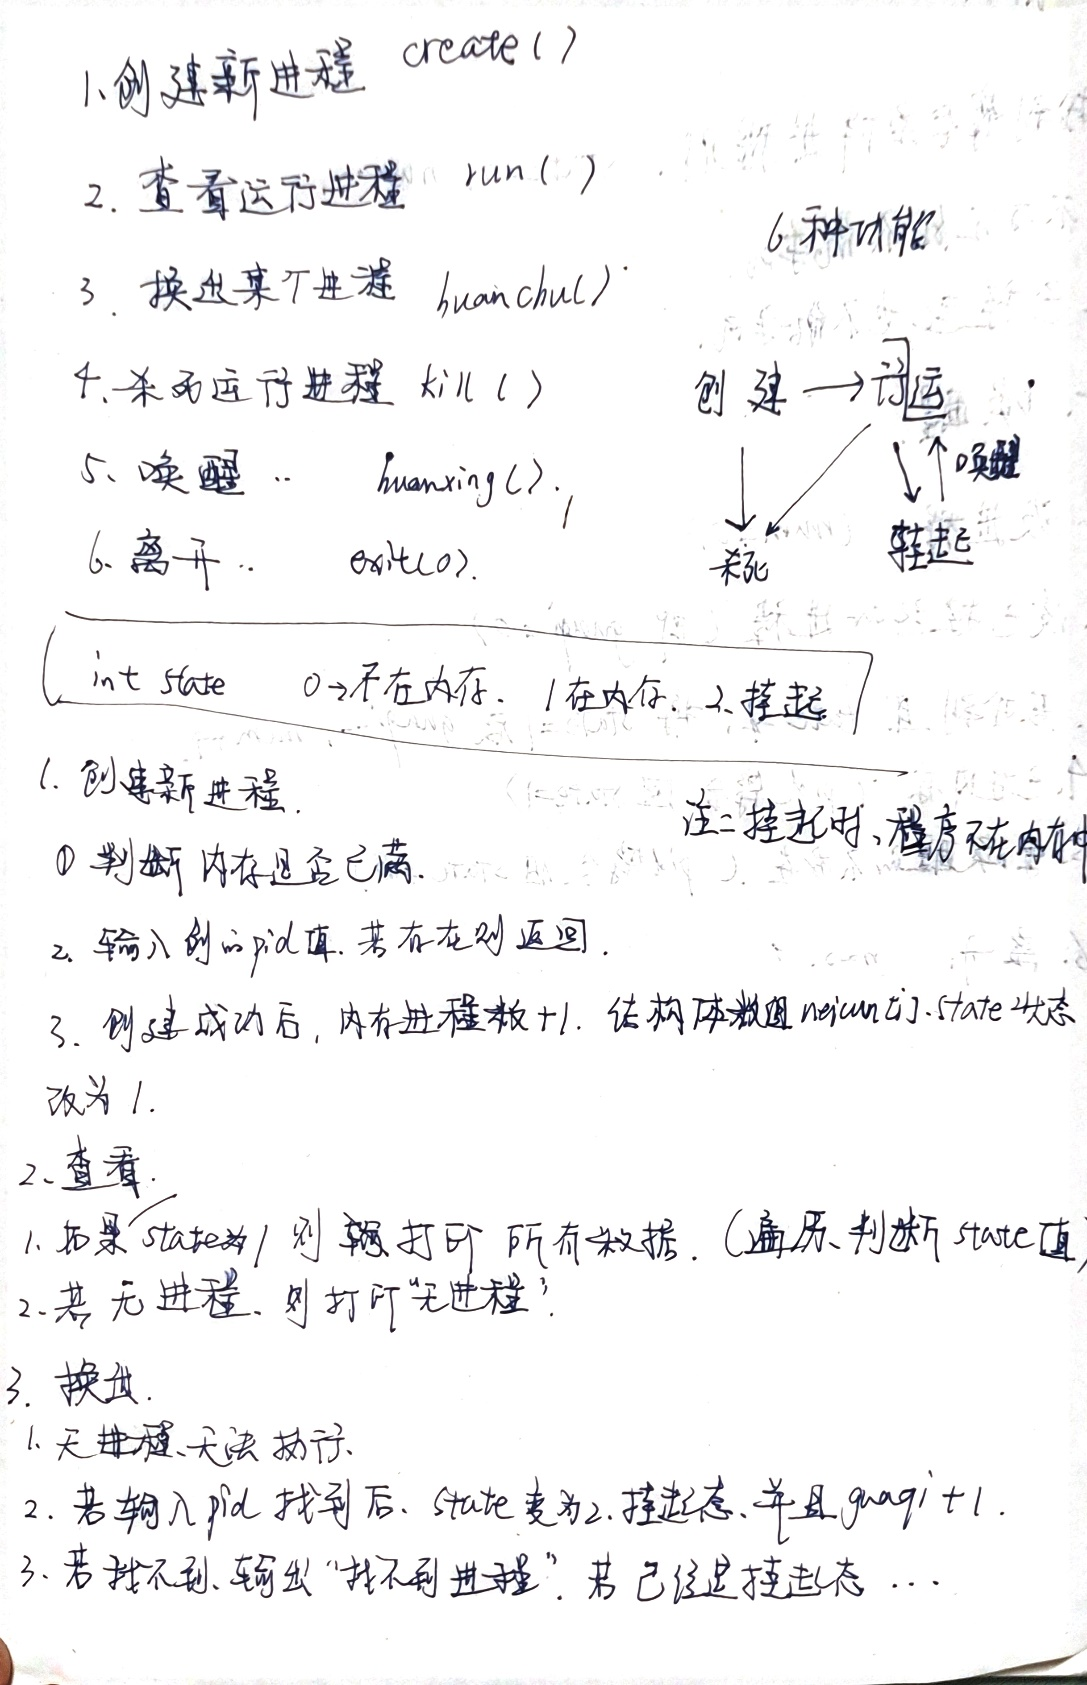 1、创建新进程 create()
2. 查看运行进程 run()
6种功能
3. 换出某个进程 huanchu()
4、杀死运行进程 kill()
创建 → 运行
5、唤醒 .. huanxing().
唤醒
杀死 挂起
6、离开 .. exit(0).
int state 0→不在内存. 1在内存. 2、挂起
1. 创建新进程.
注:挂起时、程序不在内存中
① 判断内存是否已满.
2. 输入创的pid值. 若存在则返回.
3. 创建成功后, 内存进程数+1. 结构体数组neicun[i].state状态
改为1.
2、查看.
1. 如果state为1则打印所有数据. (遍历、判断state值)
2. 若无进程、则打印“无进程”.
3. 换出.
1. 无进程、无法执行、
2. 若输入pid找到后. state变为2.挂起态、并且guaqi+1.
3. 若找不到、输出“找不到进程”. 若已经是挂起态...